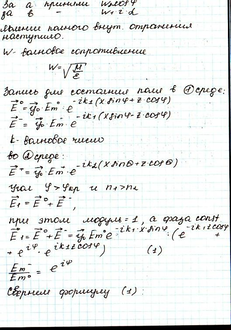 За а приняли
да в - W₁ = d
явлении полного внут. отражения
наступило.
W- волновое сопротивление
W = √(μ/ε)
Запись для состояния поля в ① среде:
E⁰ = y₀ Em⁰ · e^(-ik₁(x sinφ + z cosφ))
E⁻ = y₀ Em⁻ · e^(-ik₁(x sinφ - z cosφ))
k - волновое число
во ② среде:
E⁺ = y₀ Em · e^(-ik₂(x sinθ + z cosθ))
Угол φ > φкр и n₁ > n₂
E₁ = E⁰ + E⁻;
при этом модуль = 1, а фаза const
E₁ = E⁰ + E⁻ = y₀ Em⁰ e^(-ik₁ x sinφ) · (e^(-ik₁ z cosφ) +
+ e^(iψ) · e^(ik₁ z cosφ)) (1)
Em⁻/Em⁰ = e^(iψ)
Свернем формулу (1):